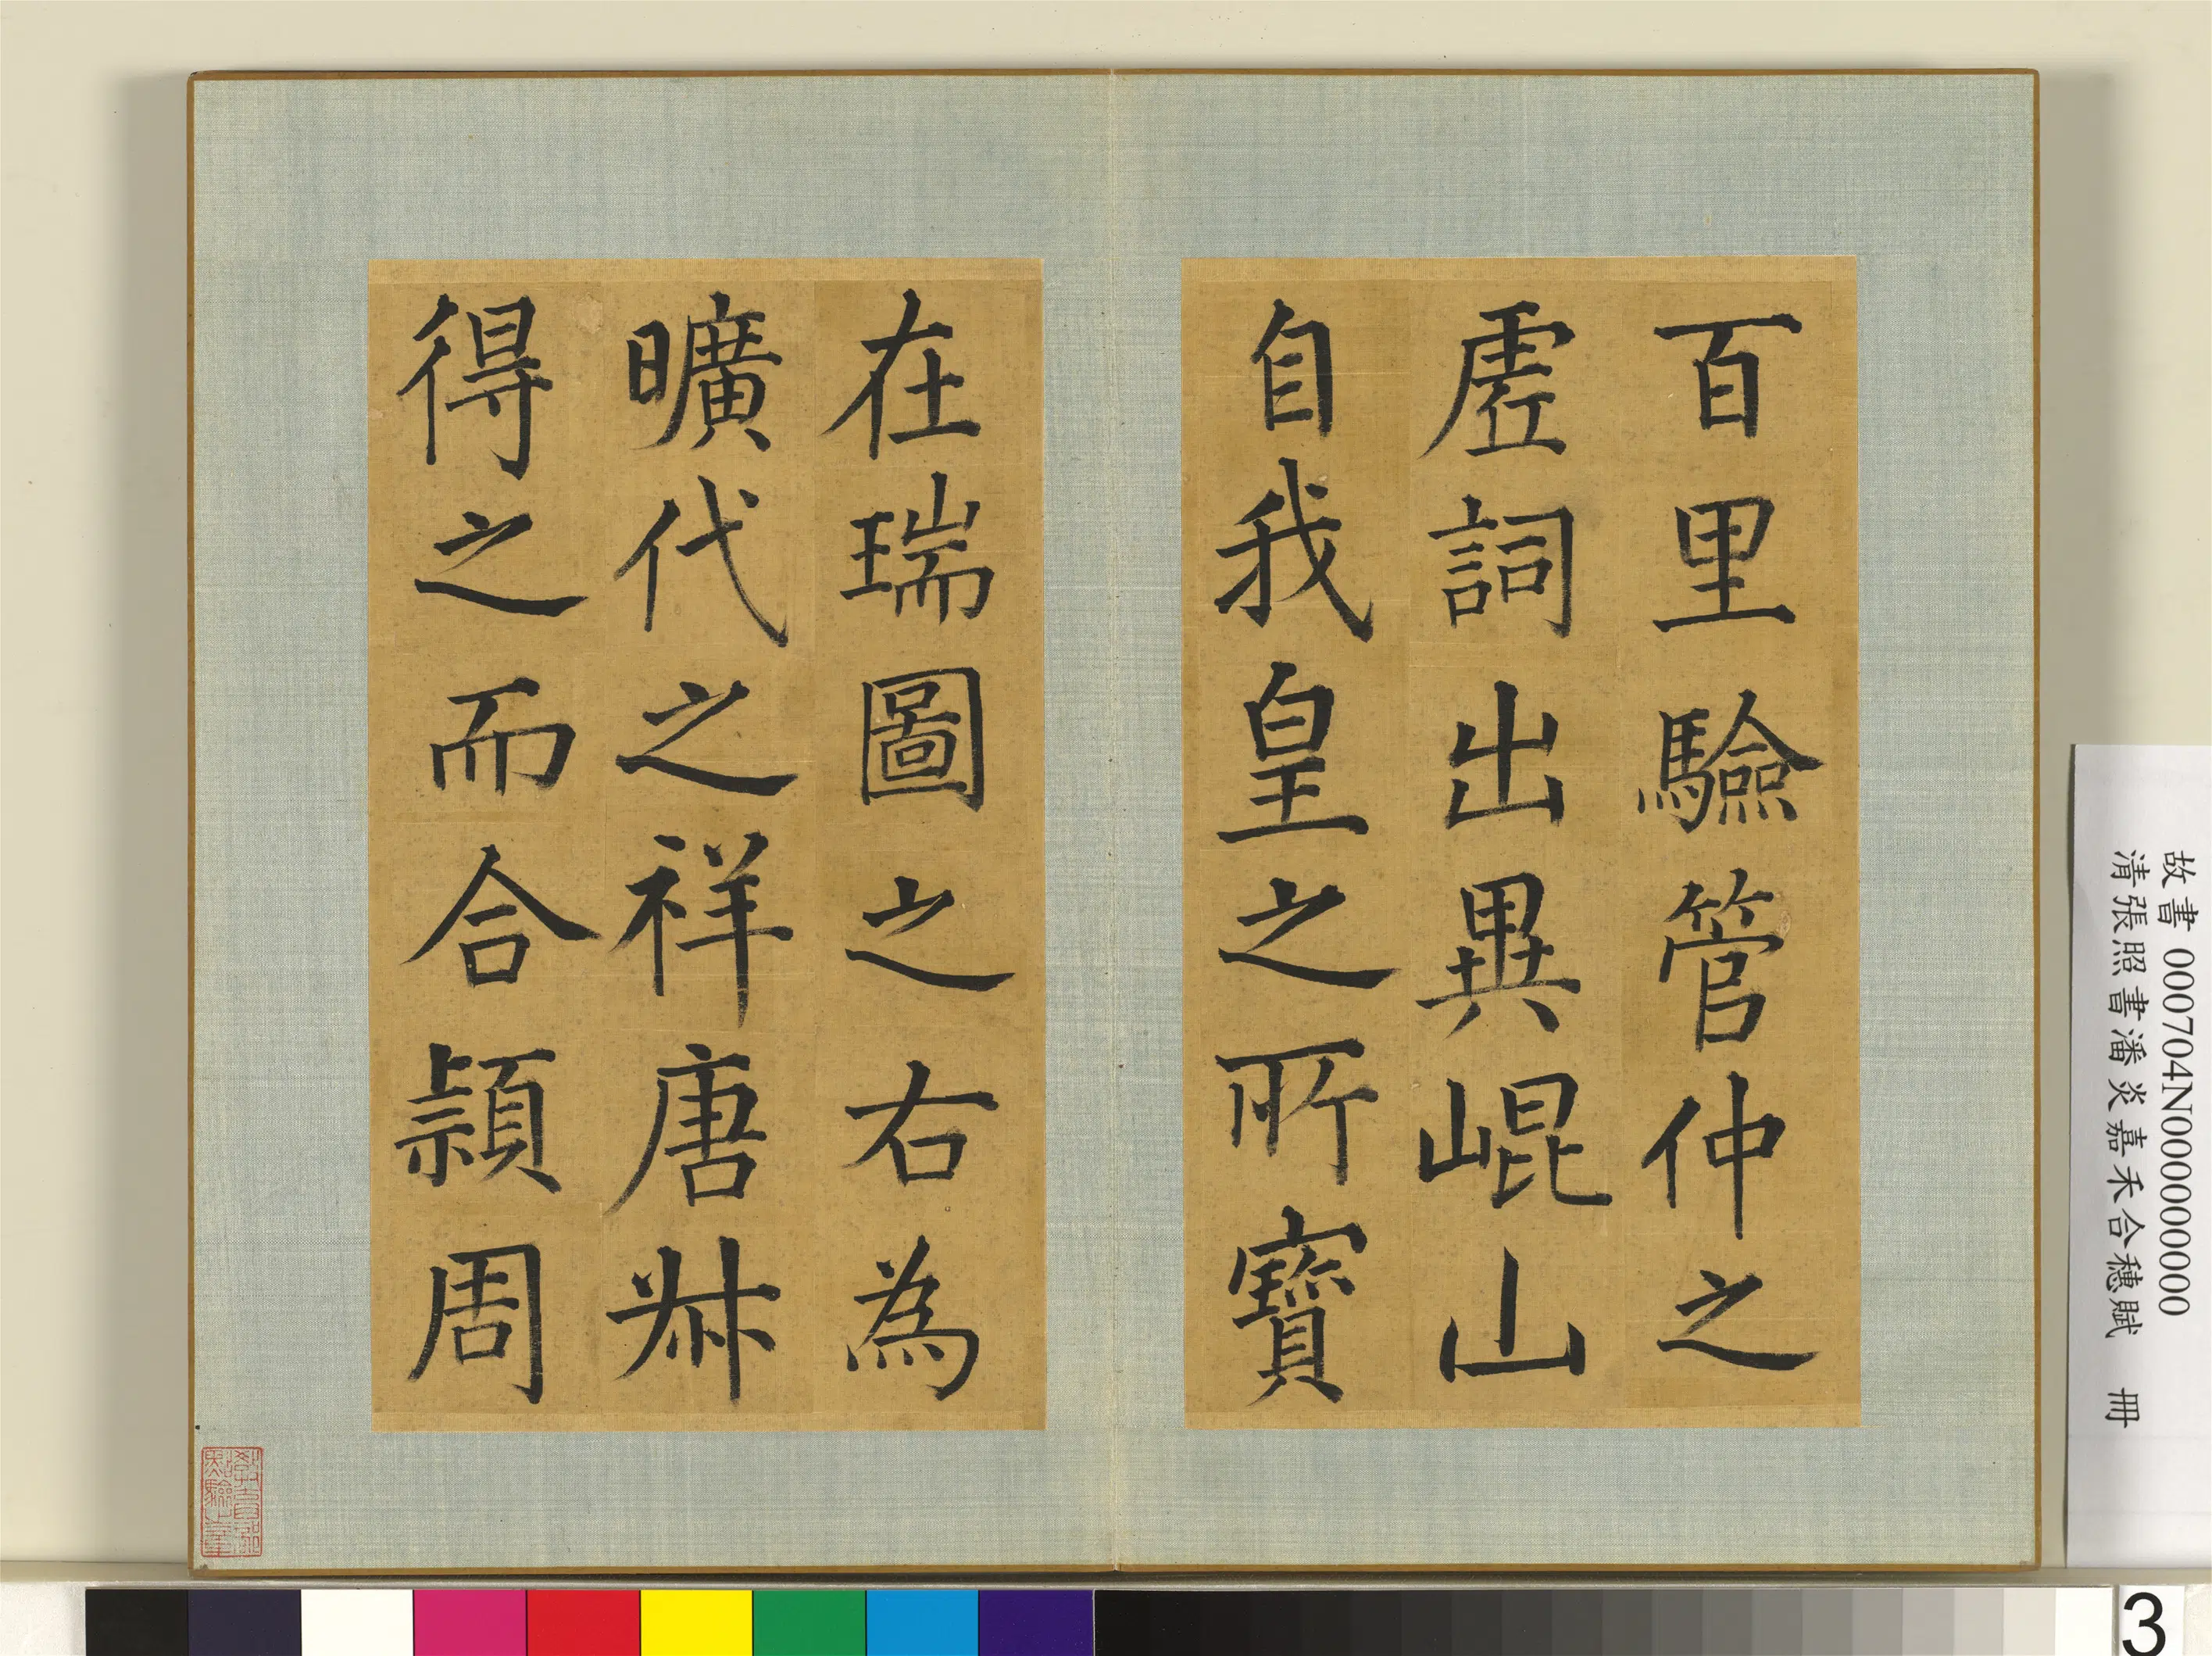 百里驗管仲之
虗詞出異崐山
自我皇之所寶
在瑞圖之右為
曠代之祥唐𠦑
得之而合頴周
故書 000704N000000000
清張照書潘炎嘉禾合穗賦 冊
3